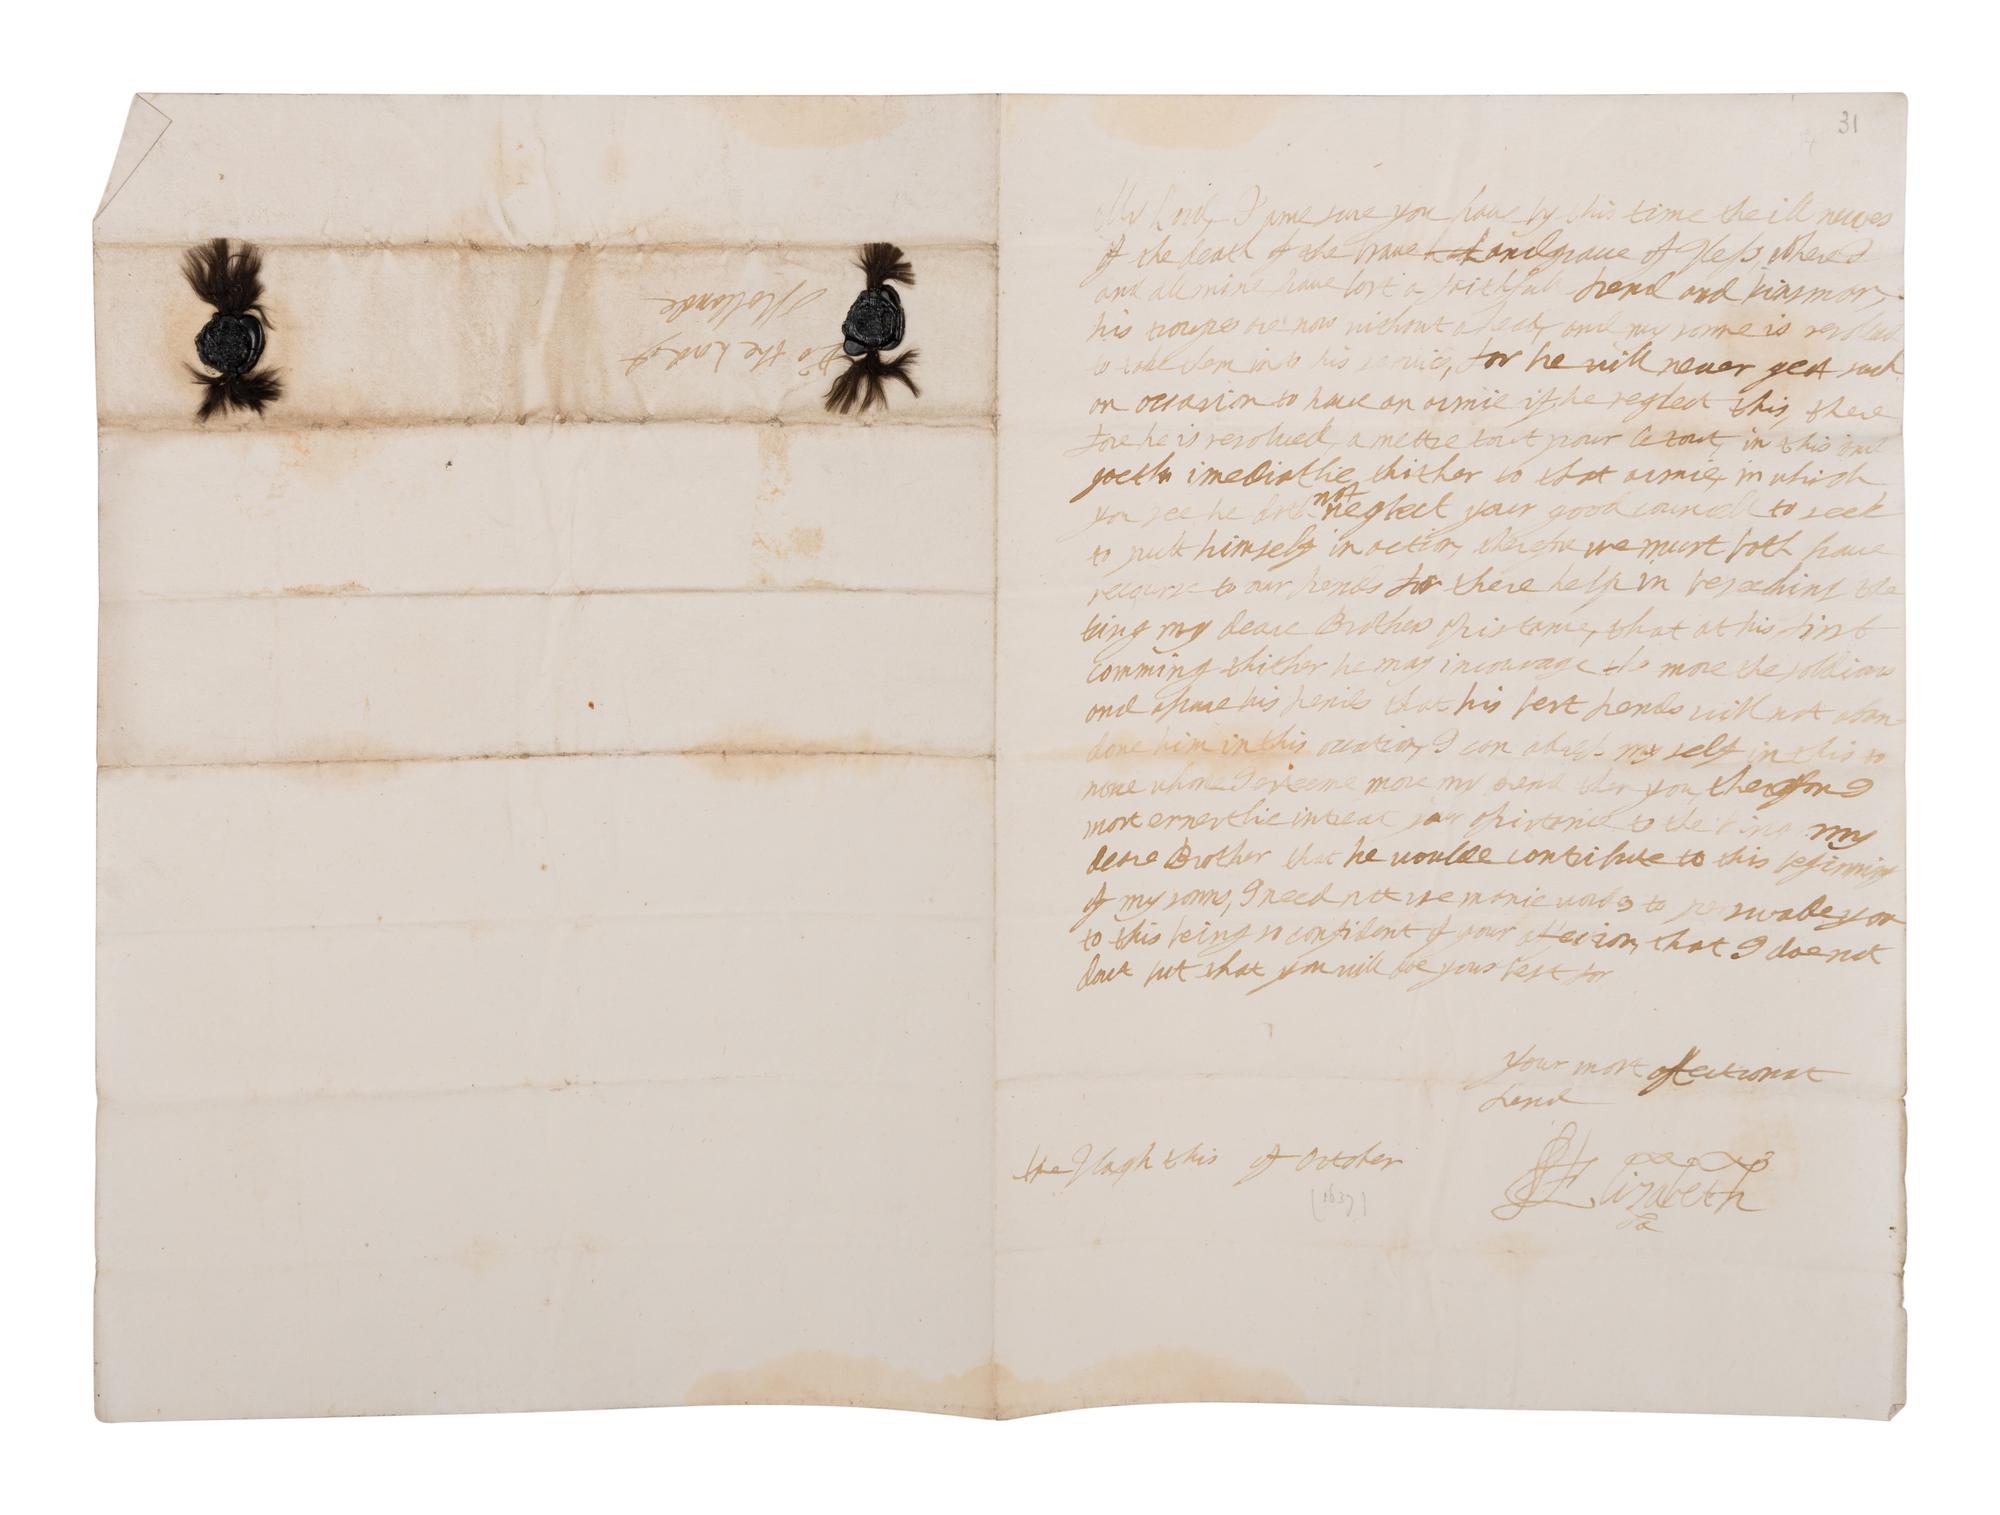 To the Lord of
Hollande
31
My Lord, I ame sure you haue by this time the ill newes
of the death of the braue Landgraue of Hess, where I
and all mine haue lost a faithfull frend and kinsman,
his troupes are now without a head, and my sonne is resolued
to take them into his service, for he will neuer gett such
an occasion to haue an armie if he neglect this, there
fore he is resolued, a mettre tout pour le tout, in this and
goeth imediatlie thither to that armie, in which
you see he doth not neglect your good councell to seek
to putt himself in action, therefore we must both haue
recourse to our frends for there help in beseeching the
king my deare Brothers assistance, that at his first
comming thither he may incourage the more the soldiers
and assure his frends that his best frends will not aban-
done him in this occasion, I can adress my self in this to
none whome I esteeme more my frend then you, therefore I
most ernestlie intreat your assistance to the king my
deare Brother that he woulde contribute to this beginning
of my sonns, I need not use manie words to perswade you
to this being so confident of your affection, that I doe not
dout but that you will doe your best for
Your most affectionat
frend
Elizabeth
the Hagh this of October
(1637)